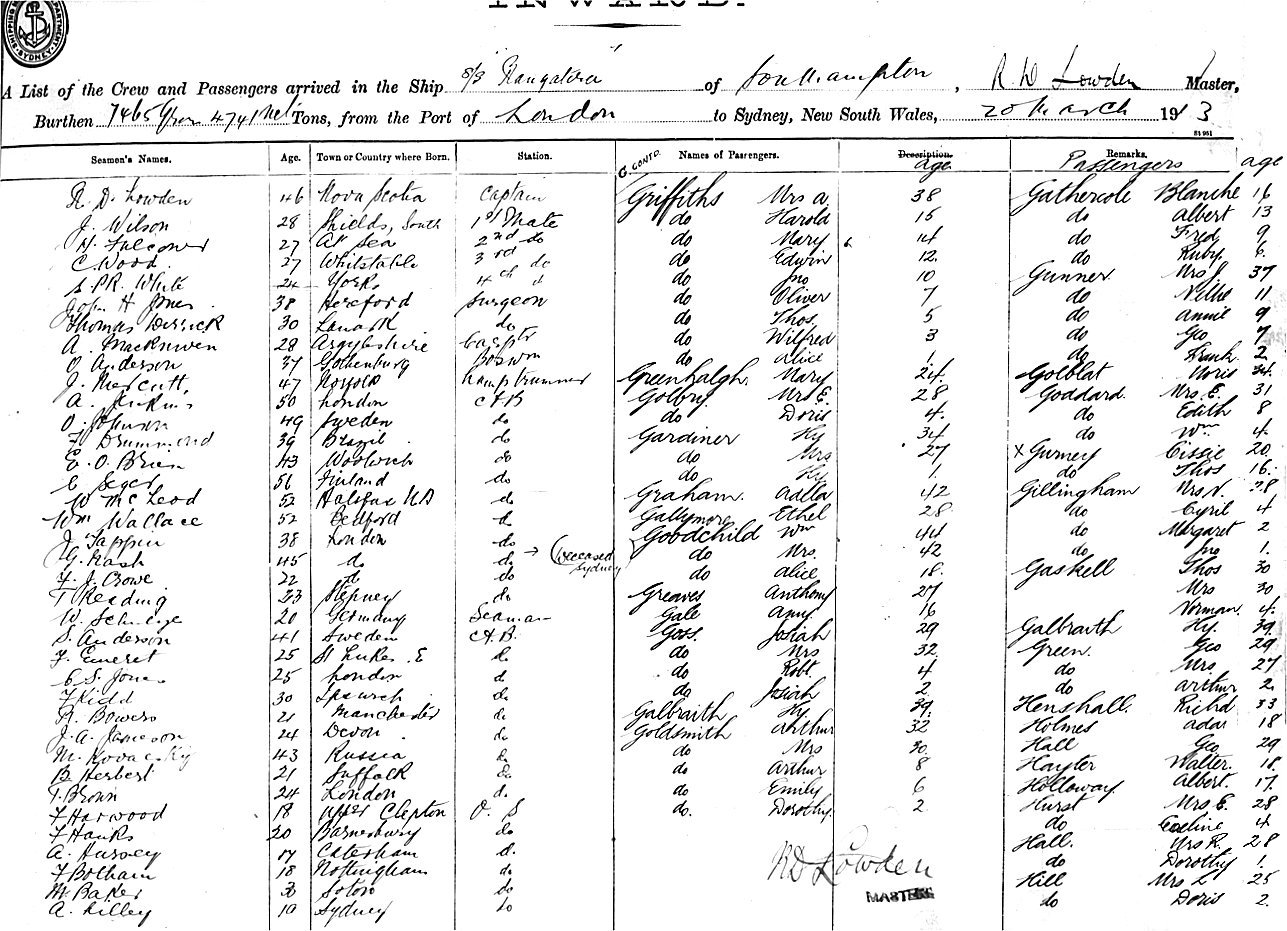 INWARD.
SHIPPING DEPARTMENT SYDNEY
A List of the Crew and Passengers arrived in the Ship S/S Rangatira of Southampton, R. D Lowden Master,
Burthen 7465 Gross 4741 Net Tons, from the Port of London to Sydney, New South Wales, 20 March 1913
Seamen's Names. Age. Town or Country where Born. Station. G CONTD. Names of Passengers. Description. age Remarks. Passengers age
R. D. Lowden 46 Nova Scotia Captain Griffiths Mrs A 38 Gathercole Blanche 16
J. Wilson 28 Shields, South 1st Mate do Harold 15 do Albert 13
H. Falconer 27 At Sea 2nd do do Mary 14 do Fred 9
C. Wood. 27 Whitstable 3rd do do Edwin 12. do Ruby 6.
S. P.R. White 24 York 4th d do Jno 10 Gunner Mrs J. 37
John H Jones 38 Hereford Surgeon do Oliver 7 do Nellie 11
Thomas Derrick 30 Lanark do do Thos. 5 do Annie 9
A. 28 Argyleshire do Wilfred 3 do Geo 7
O Anderson 37 Gothenburg Boswn do Alice 1. do Frank 2
J. 47 Norfolk Lamptrimmer Greenhalgh. Mary 24. Golblat Doris 24
A. Jenkins 50 London A B Golbry. Mrs E. 28 Goddard. Mrs. E. 31
O. Johnson 49 Sweden do do Doris 4. do Edith 8
F. Drummond 39 Brazil do Gardiner Hy 34 do Wm 4.
E. O. Brien 43 Woolwich do do Mrs 27 x Gurney Cissie 20
C Seger 56 Finland do do Hy 1. do Thos 16.
W Mc Leod 52 Halifax do Graham. Adlla 42 Gillingham Mrs N. 28
Wm Wallace 52 Bedford d Gallymore Ethel 28. do Cyril 4
J. Tappin 38 London do Goodchild Wm 44 do Margaret 2
G. Nash 45 do do → (Deceased Sydney do Mrs. 42 do Jno 1.
F. J. Crowe 22 d do do Alice 18. Gaskell Thos 30
T Reading 23 Stepney do Greaves Anthony 27 Mrs 30
W. 20 Germany Seaman Gale Amy 16 Norman. 4.
S. Anderson 41 Sweden A.B. Goss. Josiah 29 Galbraith Hy. 39
F. Emeret 25 St Lukes. E d. do Mrs 32. Green. Geo 29
C S. Jones 25 London d do Robt. 4 do Mrs 27
F Kidd 30 Ipswich d. do Josiah 2. do Arthur 2.
R. Bowers 21 Manchester d. Galbraith Hy. 39. Henshall. Richd 33
J. A. Jameson 24 Devon d. Goldsmith Arthur 32 Holmes Adar 18
M. Kovacsky 43 Russia d. do Mrs 30. Hall Geo 29
B. Herbert 21 Suffolk d. do Arthur 8 Hayter Walter. 18.
T. Brown 24 London d. do Emily 6 Holloway Albert. 17.
F Harwood 18 Upper Clapton O. S do. Dorothy. 2 Hurst Mrs E. 28
F Hanks 20 Barnesbury do do Eveline 4
A. Hussey 17 Caterham d. Hall. Mrs R. 28
F Botham 18 Nottingham do RD Lowden do Dorothy 1.
M. Baker Soton do MASTER Hill Mrs L 25
A. Lilley 19 Sydney do do Doris 2.